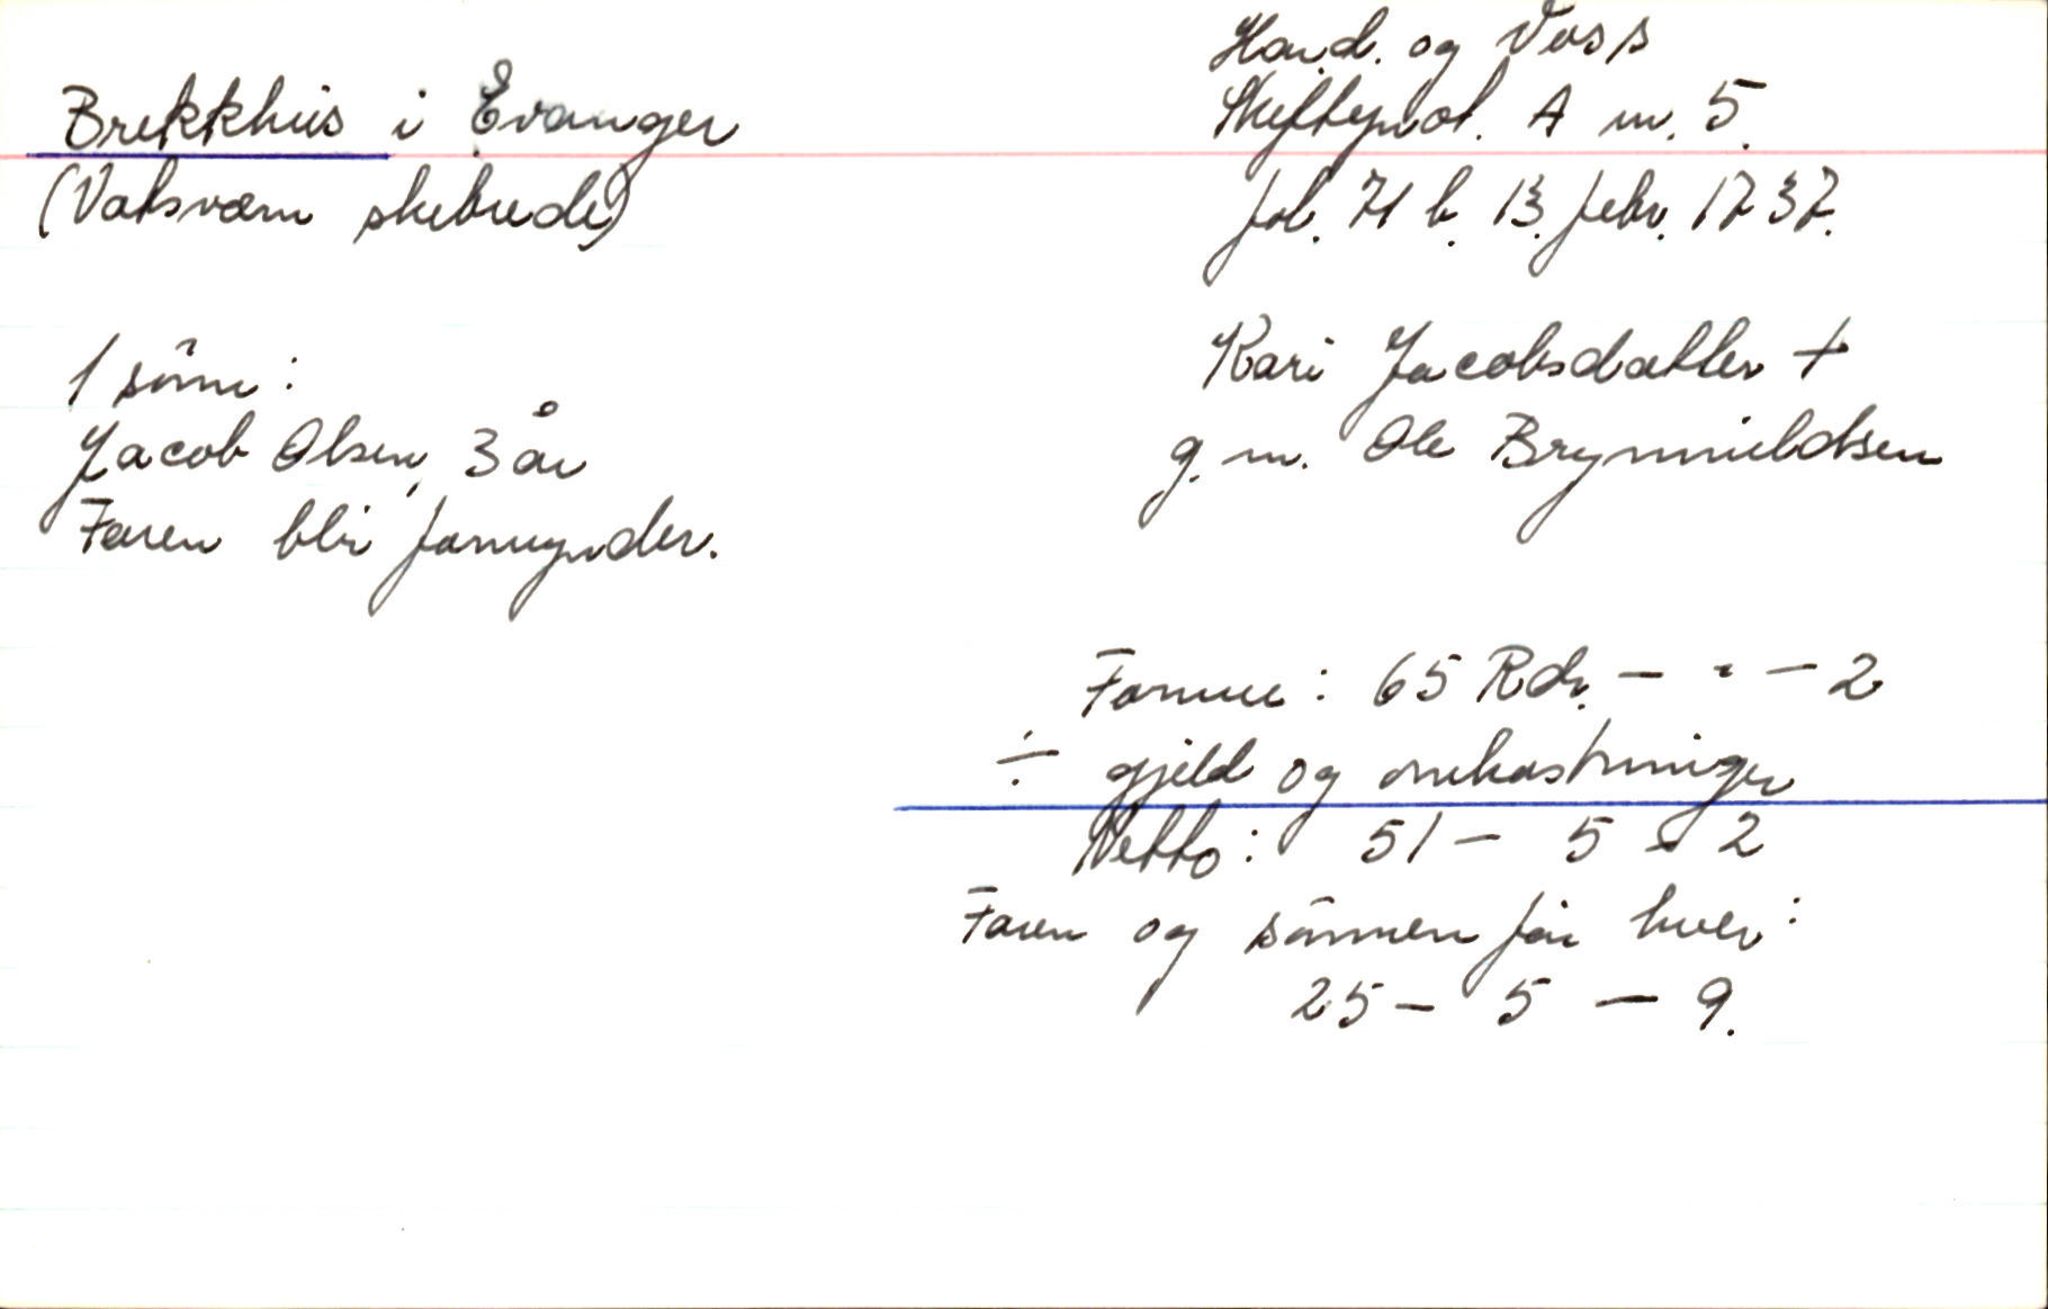 Brekkhus i Evanger
(Vatsvæm skibrede)
1 sönn:
Jacob Olsen, 3 år
Faren blir formynder.
Hard. og Voss
Skifteprot. A nr. 5.
fol. 71 b. 13. febr. 1737.
Kari Jacobsdatter +
g. m. Ole Brynnieldsen
Formue: 65 Rdr. - - - 2
÷ gjeld og omkostninger
Netto: 51 - 5 - 2
Faren og sönnen får hver:
25 - 5 - 9.